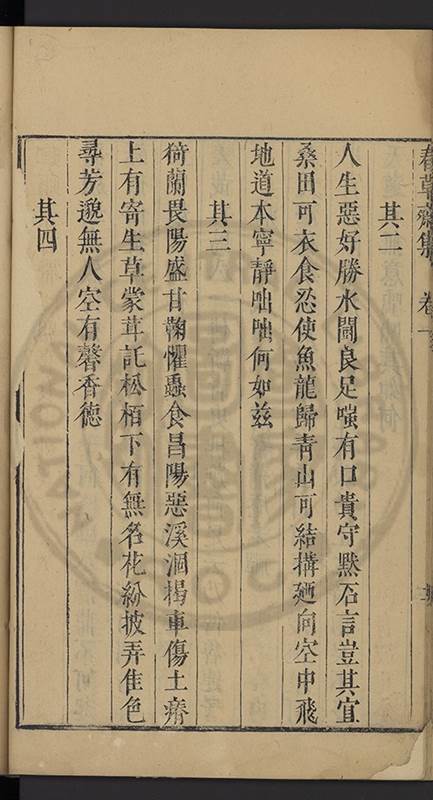 春草齋集 卷一
其二
人生惡好勝水鬬良足嗤有口貴守默石言豈其宜
桑田可衣食忍使魚龍歸青山可結搆廼向空中飛
地道本寧靜咄咄何如兹
其三
猗蘭畏陽盛甘鞠懼蟲食昌陽惡溪涸揭車傷土瘠
上有寄生草蒙茸託松栢下有無名花紛披弄隹色
尋芳邈無人空有馨香德
其四